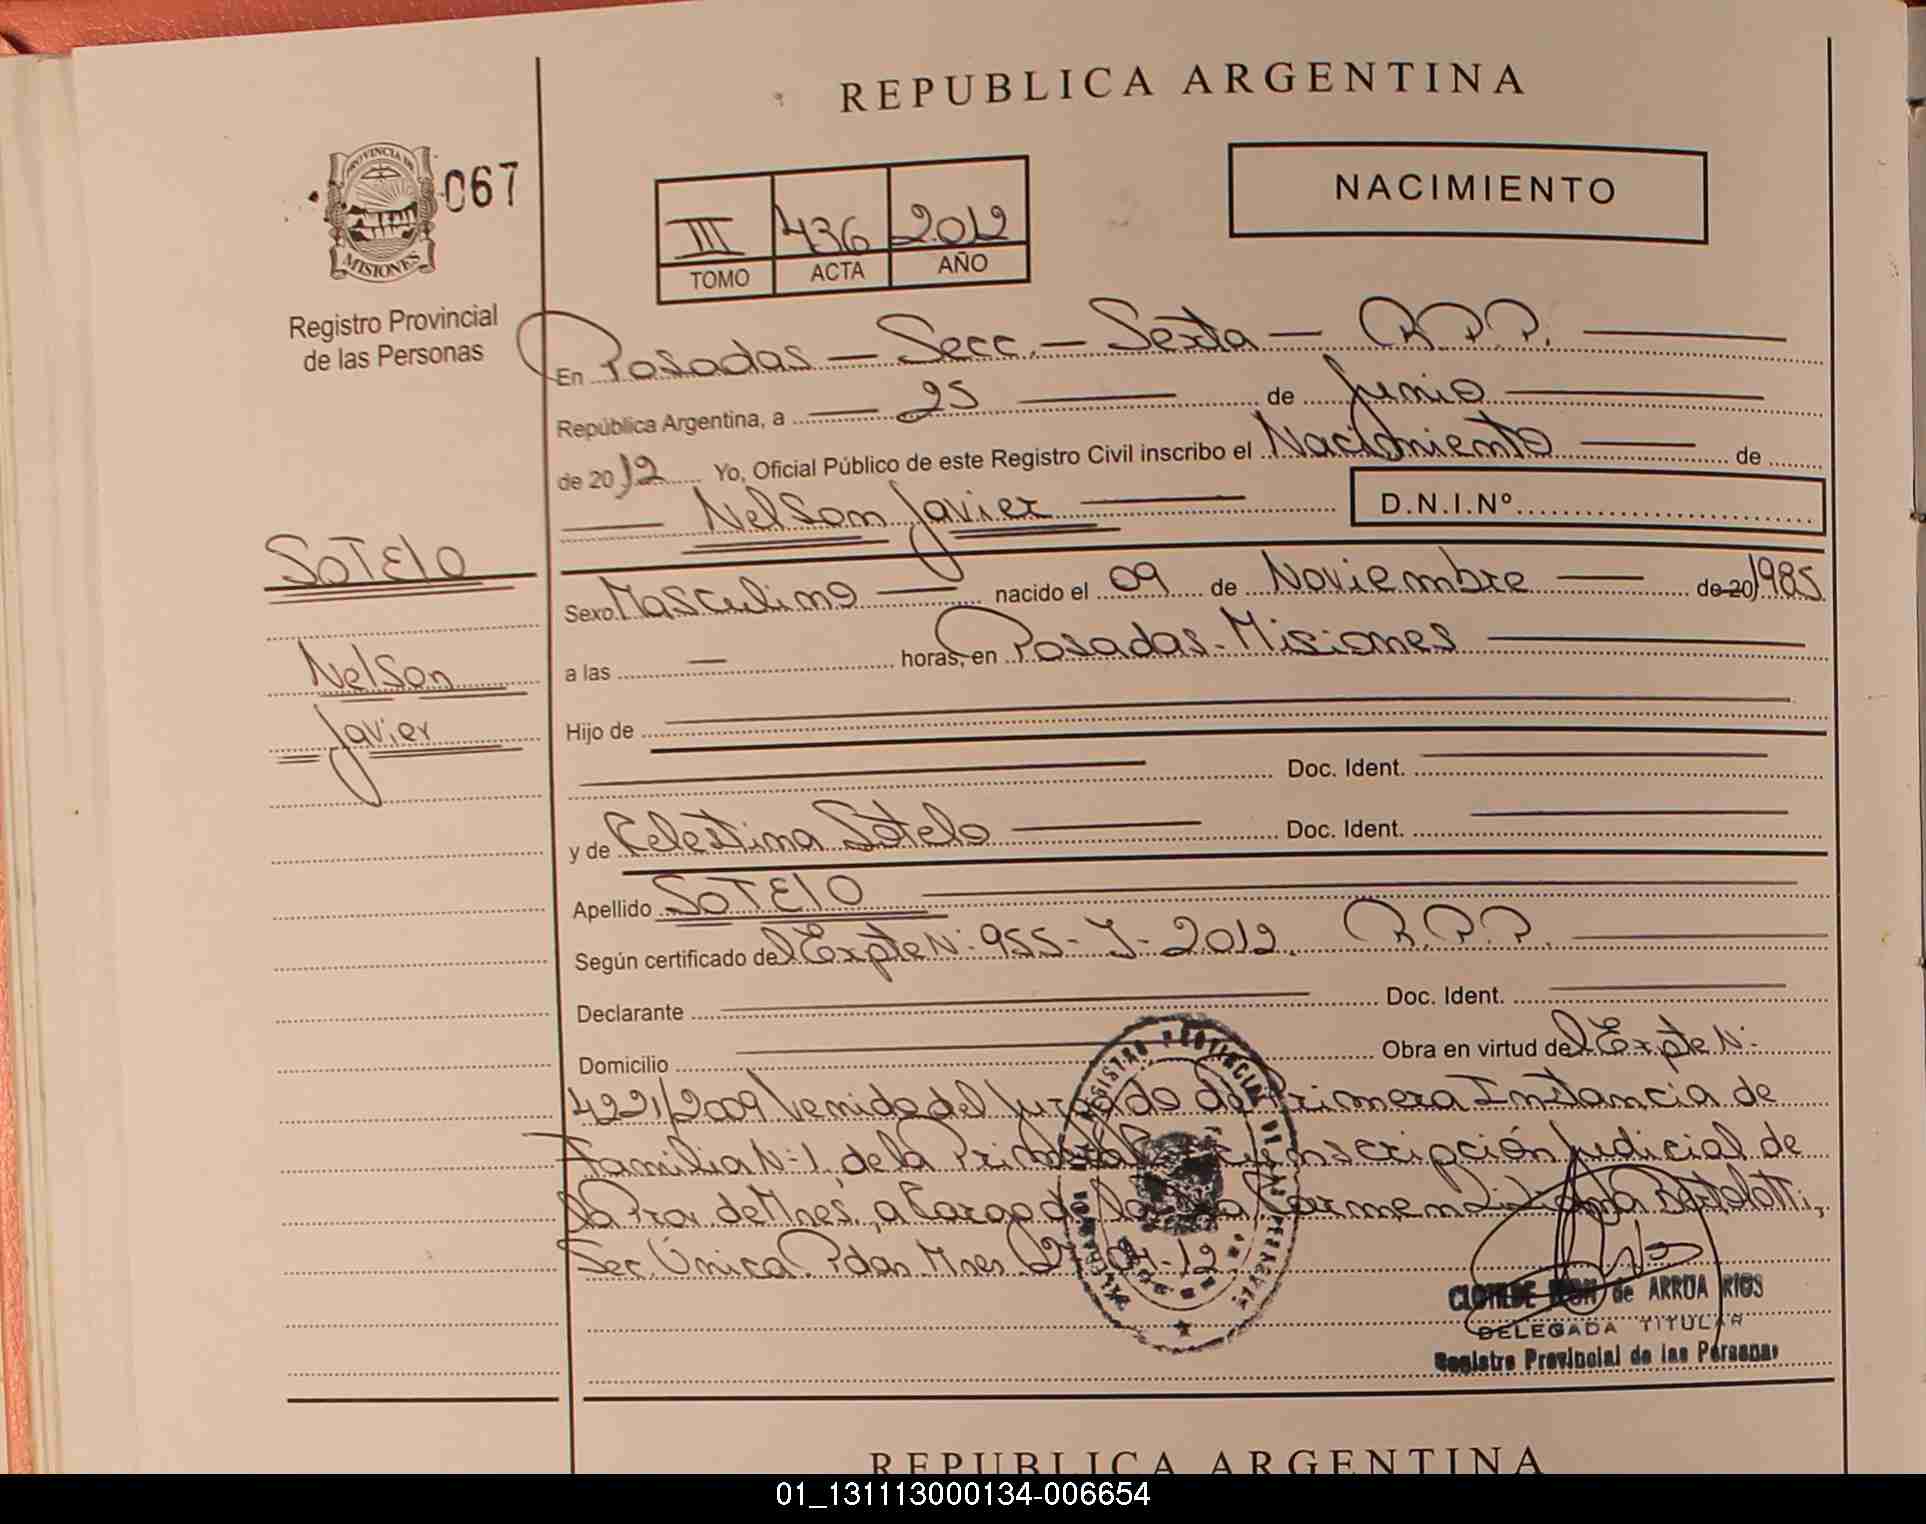 REPUBLICA ARGENTINA
PROVINCIA DE
MISIONES
067
Registro Provincial
de las Personas
III 436 2012
TOMO ACTA AÑO
NACIMIENTO
En Posadas — Secc. — Sexta — R.P.P.
República Argentina, a — 25 — de Junio
de 2012 Yo, Oficial Público de este Registro Civil inscribo el Nacimiento — de
Nelson Javier — D.N.I.Nº
SOTELO
Nelson
Javier
Sexo Masculino — nacido el 09 de Noviembre — de 20 1985
a las — horas, en Posadas - Misiones
Hijo de
Doc. Ident.
y de Celestina Sotelo — Doc. Ident.
Apellido SOTELO
Según certificado del Expte N: 955-J-2012. R.P.P.
Declarante Doc. Ident.
Domicilio Obra en virtud del Expte N:
4221/2009 Venido del Juzgado de Primera Instancia de
Familia N:1, de la Primera inscripción Judicial de
la Prov. de Mnes, a Cargo de la Carmen Bertolotti,
Sec. Única. Pdas Mnes 04-12.
REGISTRO PROVINCIAL DE LAS PERSONAS
CLOTILDE de ARRUA RIOS
DELEGADA TITULAR
Registro Provincial de las Personas
REPUBLICA ARGENTINA
01_131113000134-006654